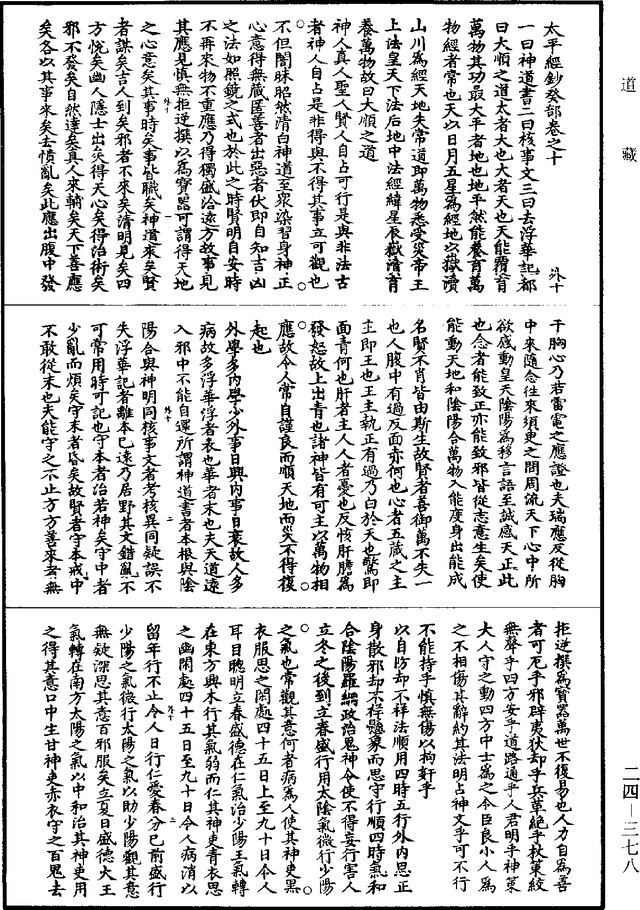 道 藏
太平經鈔癸部卷之十 外十
一曰神道書二曰核事文三曰去浮華記都
曰大順之道太者大也大者天也天能覆育
萬物其功最大平者地也地平然能養育萬
物經者常也天以日月五星為經地以嶽瀆
山川為經天地失常道即萬物悉受災帝王
上法皇天下法后地中法經緯星辰嶽瀆育
養萬物故曰大順之道
神人真人聖人賢人自占可行是與非法古
者神人自占是非得與不得其事立可觀也
不但闇昧昭然清白神道至眾染習身神正
心意得無藏匿善者出惡者伏即自知吉凶
之法如照鏡之式也於此之時賢明自安時
不再來物不重應乃得獨盛洽遠方故事見
其應見慎無拒逆撰以為寶器可謂得天地
之心意矣其事時矣事皆職矣神道來矣賢
者謀矣吉人到矣邪者不來矣清明見矣四
方悅矣幽人隱士出災得天心矣得治術矣
邪不發矣自然達矣真人來輔矣天下善應
矣各以其事來矣去憤亂矣此應出腹中發
于胸心乃若雷電之應證也夫瑞應反從胸
中來隨念往來須臾之間周流天下心中所
欲感動皇天陰陽為移言語至誠感天正此
也念者能致正亦能致邪皆從志意生矣使
能動天地和陰陽合萬物入能度身出能成
名賢不肖皆由斯生故賢者善御萬不失一
也人腹中有過反面亦何也心者五藏之主
主即王也王主執正有過乃白於天也驚即
面青何也肝者主人人者憂也反核肝膽為
發怒故上出青也諸神皆有可主以萬物相
應故令人常自謹良而順天地而災不得復
起也
外學多內學少外事日興內事日衰故人多
病故多浮華浮者表也華者末也夫天道遠
入邪中不能自還所謂神道書者本根與陰
外十 二
陽合與神明同核事文者考核異同疑誤不
失浮華記者離本已遠乃居野其文錯亂不
可常用時可記也守本者治若神矣守中者
少亂而煩矣守末者昏矣故賢者守本戒中
不敢從末也夫能守之不止方方善來者無
拒逆撰為寶器萬世不復易也人力自為善
者可尼乎邪辟夷狄却乎兵革絕乎秋菓絞
無聲乎四方安乎道路通乎人君明乎神菓
大人守之動四方中士為之令臣良小人為
之不相傷其辭約其法明占神文乎可不行
不能持乎慎無傷以拘奸乎
以自防却不祥法順用四時五行外內思正
身散邪却不祥懸象而思守行順四時氣和
合陰陽羅網政治鬼神令使不得妄行害人
立冬之後到立春盛行用太陰氣微行少陽
之氣也常觀其意何者病為人使其神吏黑
衣服思之閑處四十五日上至九十日令人
耳目聰明立春盛德在仁氣治少陽王氣轉
在東方興木行其氣弱而仁其神吏青衣思
之幽閑處四十五日至九十日令人病消以
留年行不止令人日行仁愛春分已前盛行
少陽之氣微行太陽之氣以助少陽觀其意
無疑深思其意百邪服矣立夏日盛德火王
氣轉在南方太陽之氣以中和治其神吏用
之得其意口中生甘神吏赤衣守之百鬼去
二四—三七八